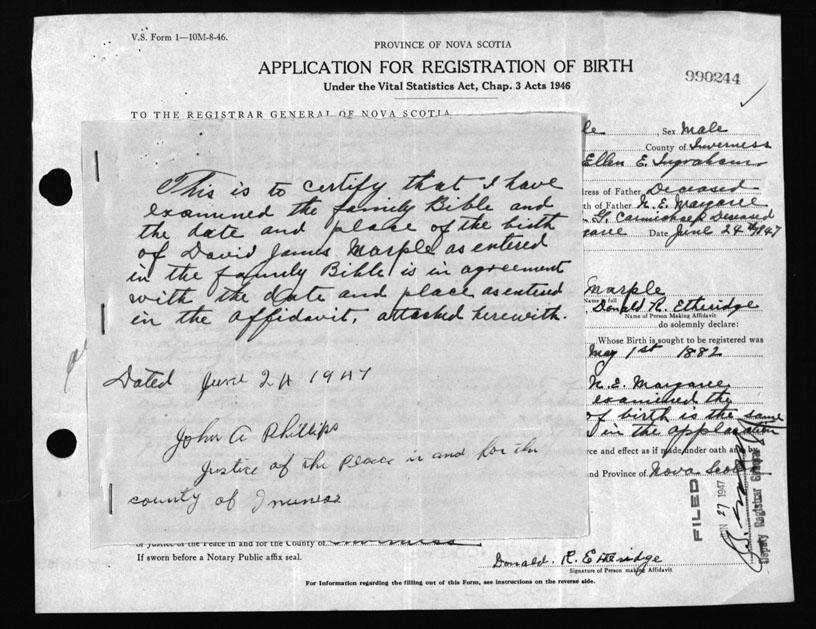 V.S. Form 1—10M-8-46.
PROVINCE OF NOVA SCOTIA
APPLICATION FOR REGISTRATION OF BIRTH
Under the Vital Statistics Act, Chap. 3 Acts 1946
990244
TO THE REGISTRAR GENERAL OF NOVA SCOTIA
This is to certify that I have
examined the family Bible and
the date and place of the birth
of David James Marple as entered
in the family Bible is in agreement
with the date and place as entired
in the affidavit, attached herewith.
Dated June 24 1947
John A Phillips
Justice of the Peace in and for the
county of Inverness
Sex Male
County of Inverness
Ellen E. Ingraham
dress of Father Deceased
th of Father N. E. Margaree
G. Carmichael Deceased
garee Date June 24th 1947
Marple
Name in full
Donald R. Etheridge
Name of Person Making Affidavit
do solemnly declare:
Whose Birth is sought to be registered was
May 1st 1882
N. E. Margaree
examined the
of birth is the same
in the application
rce and effect as if made under oath and by
nd Province of Nova Scotia
FILED
27 1947
Deputy Registrar General
or Justice of the Peace in and for the County of Inverness
If sworn before a Notary Public affix seal.
Donald. R. Etheridge
Signature of Person making Affidavit
For Information regarding the filling out of this Form, see instructions on the reverse side.